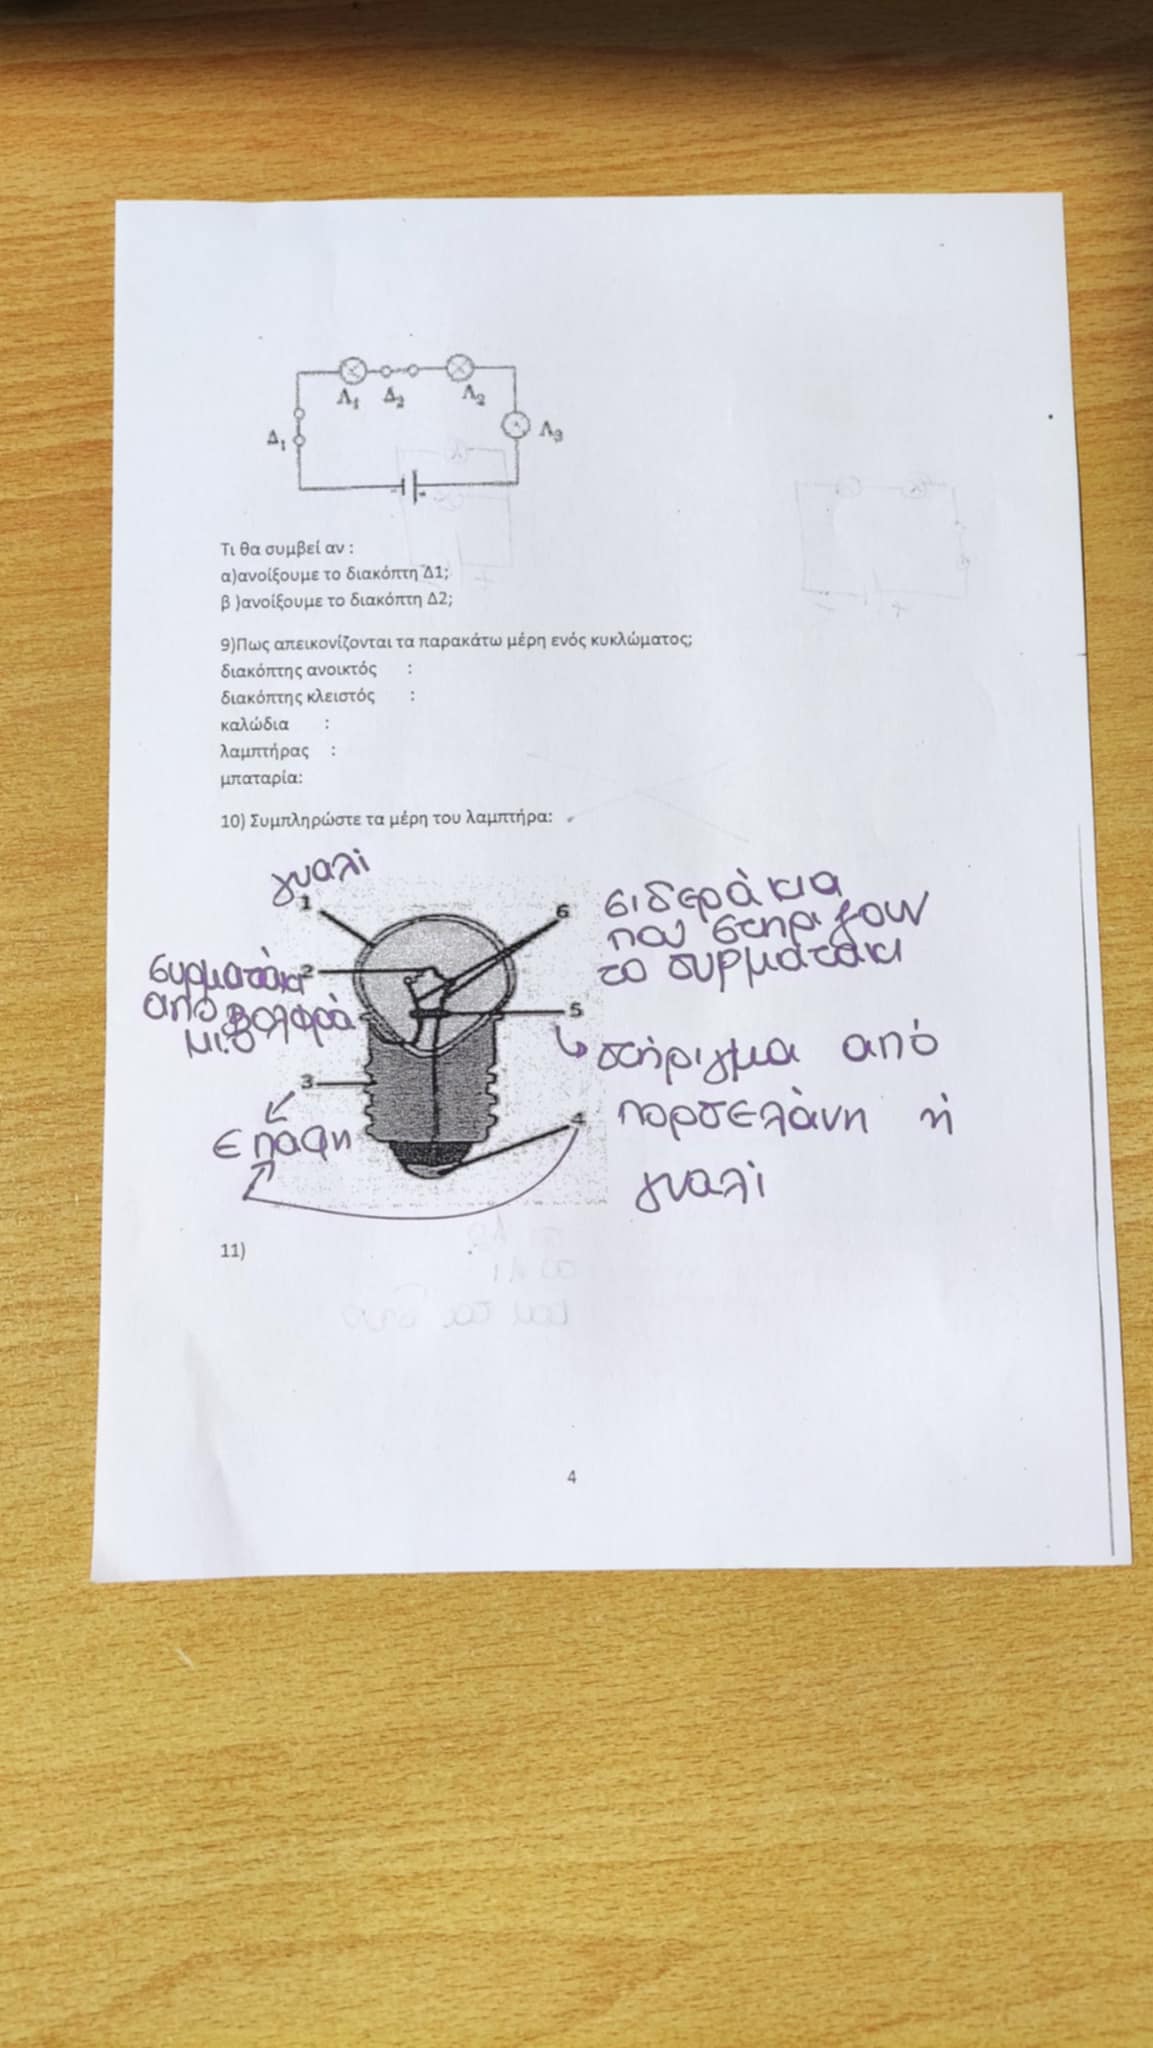 Λ₁ Δ₂ Λ₂
Δ₁ Λ₃
Τι θα συμβεί αν :
α)ανοίξουμε το διακόπτη Δ1;
β )ανοίξουμε το διακόπτη Δ2;
9)Πως απεικονίζονται τα παρακάτω μέρη ενός κυκλώματος;
διακόπτης ανοικτός :
διακόπτης κλειστός :
καλώδια :
λαμπτήρας :
μπαταρία:
10) Συμπληρώστε τα μέρη του λαμπτήρα:
γυαλί
1
συρματάκι
από βολφρά
μιο
2
3
επάφη
6
σιδεράκια
που στηρίζουν
το συρματάκι
5
στήριγμα από
πορσελάνη ή
γυαλί
4
11)
4